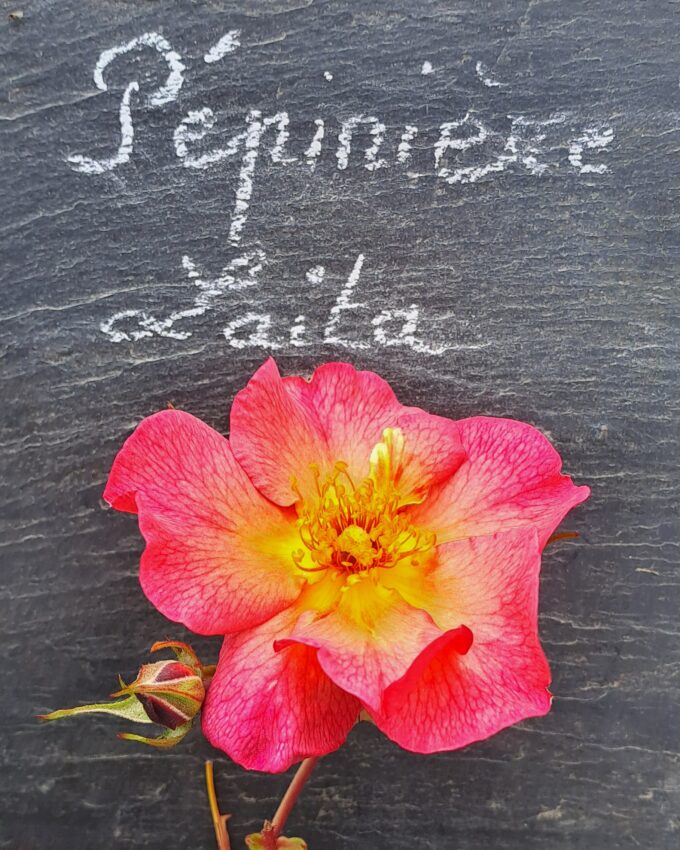 Pépinière
Laïta